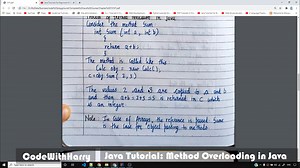 Consider the method Sum:
int Sum (int a, int b)
{
return a+b;
}
The method is called like this
Calc obj = new Calc();
c = obj.Sum( 2, 3 )
The values 2 and 3 are copied to a and b
and then a+b = 2+3 = 5 is returned in C which
is an integer.
Note: In case of Arrays, the reference is passed. Same
is the case for object passing to methods.
CodeWithHarry | Java Tutorial: Method Overloading in Java